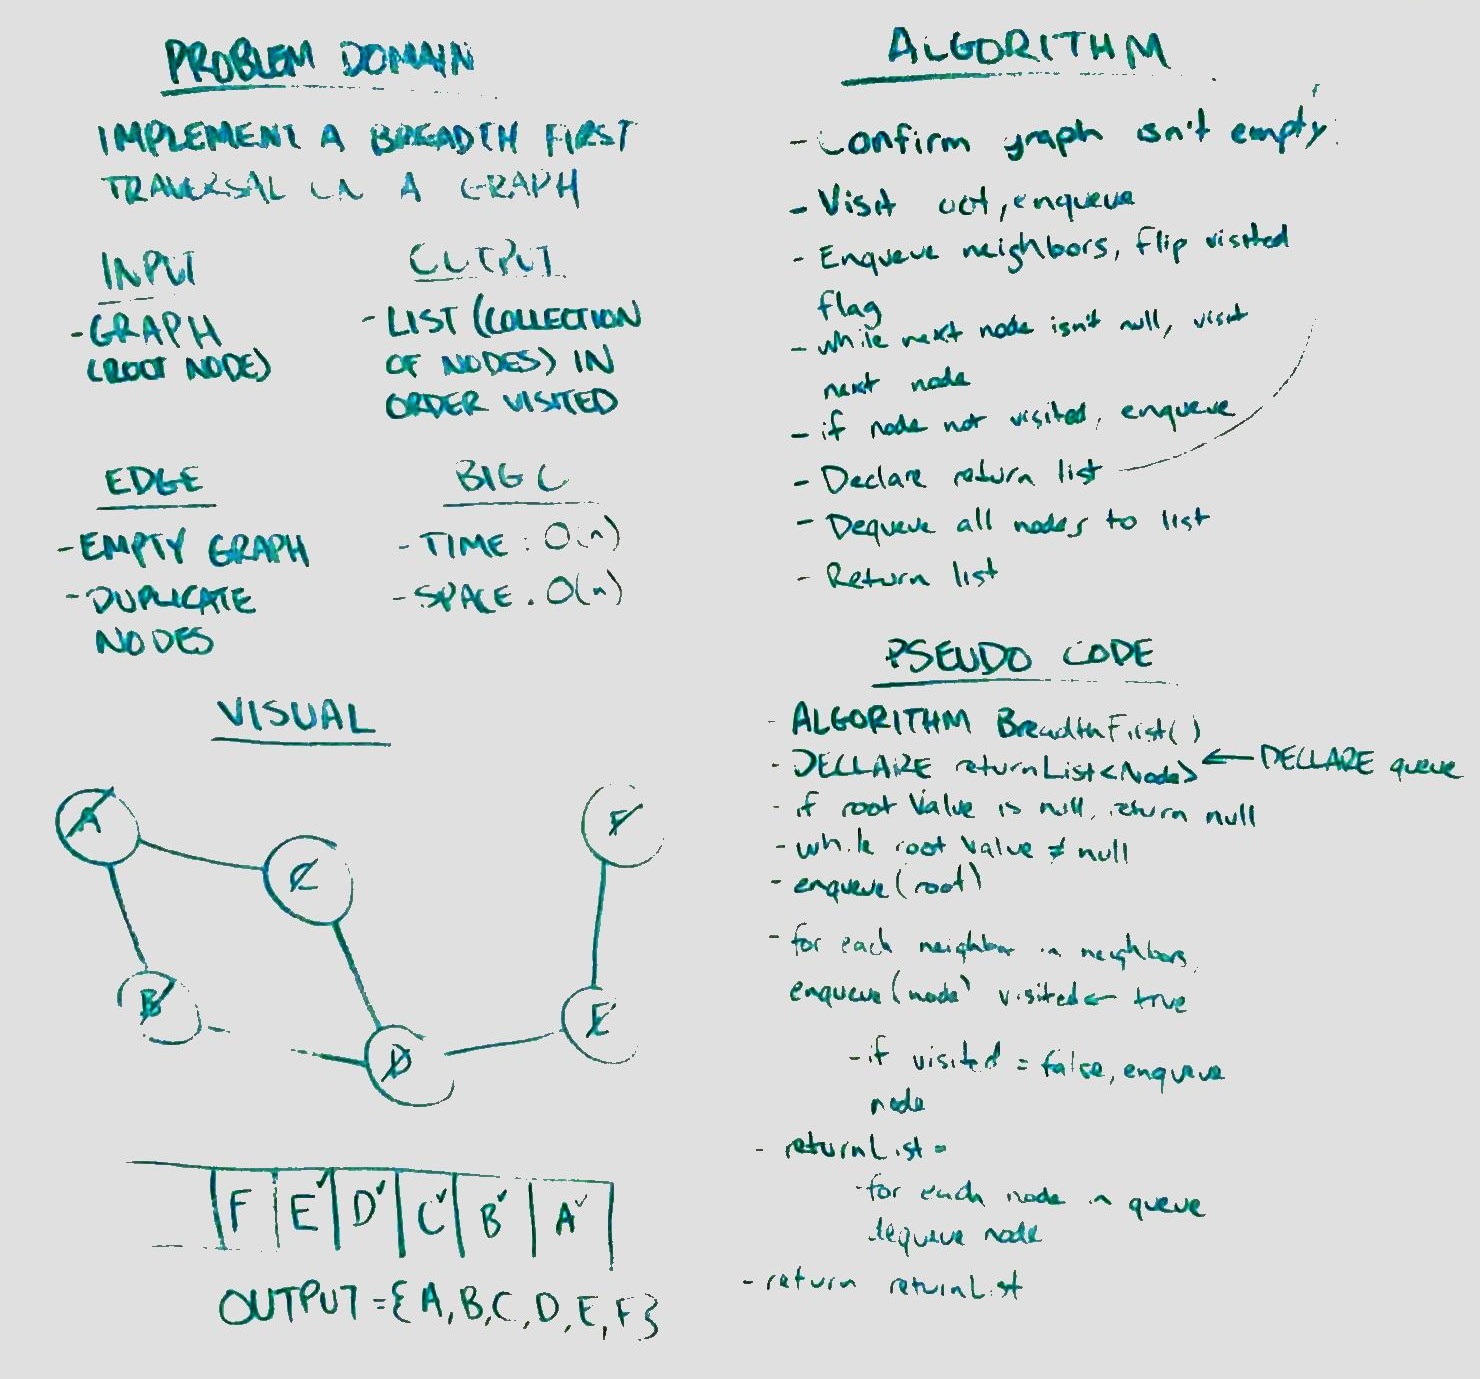 PROBLEM DOMAIN
IMPLEMENT A BREADTH FIRST
TRAVERSAL ON A GRAPH
INPUT
- GRAPH
(ROOT NODE)
OUTPUT
- LIST (COLLECTION
OF NODES) IN
ORDER VISITED
EDGE
- EMPTY GRAPH
- DUPLICATE
NODES
BIG O
- TIME: O(n)
- SPACE: O(n)
VISUAL
A
C
F
B
D
E
F E✓ D✓ C✓ B✓ A✓
OUTPUT = {A, B, C, D, E, F}
ALGORITHM
- Confirm graph isn't empty
- Visit root, enqueue
- Enqueue neighbors, flip visited
flag
- while next node isn't null, visit
next node
- if node not visited, enqueue
- Declare return list
- Dequeue all nodes to list
- Return list
PSEUDO CODE
- ALGORITHM BreadthFirst()
- DECLARE returnList<Node> ← DECLARE queue
- if root Value is null, return null
- while root Value ≠ null
- enqueue(root)
- for each neighbor in neighbors,
enqueue(node) visited ← true
- if visited = false, enqueue
node
- returnList =
- for each node in queue
dequeue node
- return returnList